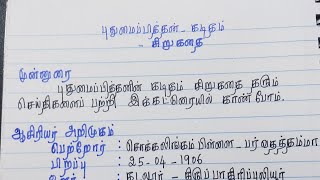 புதுமைப்பித்தன் - கடிதம்
- சிறுகதை
முன்னுரை
புதுமைப்பித்தனின் கடிதம் சிறுகதை தரும்
செய்திகளைப் பற்றி இக்கட்டுரையில் காண்போம்.
ஆசிரியர் அறிமுகம்
பெற்றோர் : சொக்கலிங்கம்பிள்ளை - பர்வதத்தம்மா
பிறப்பு : 25-04-1906